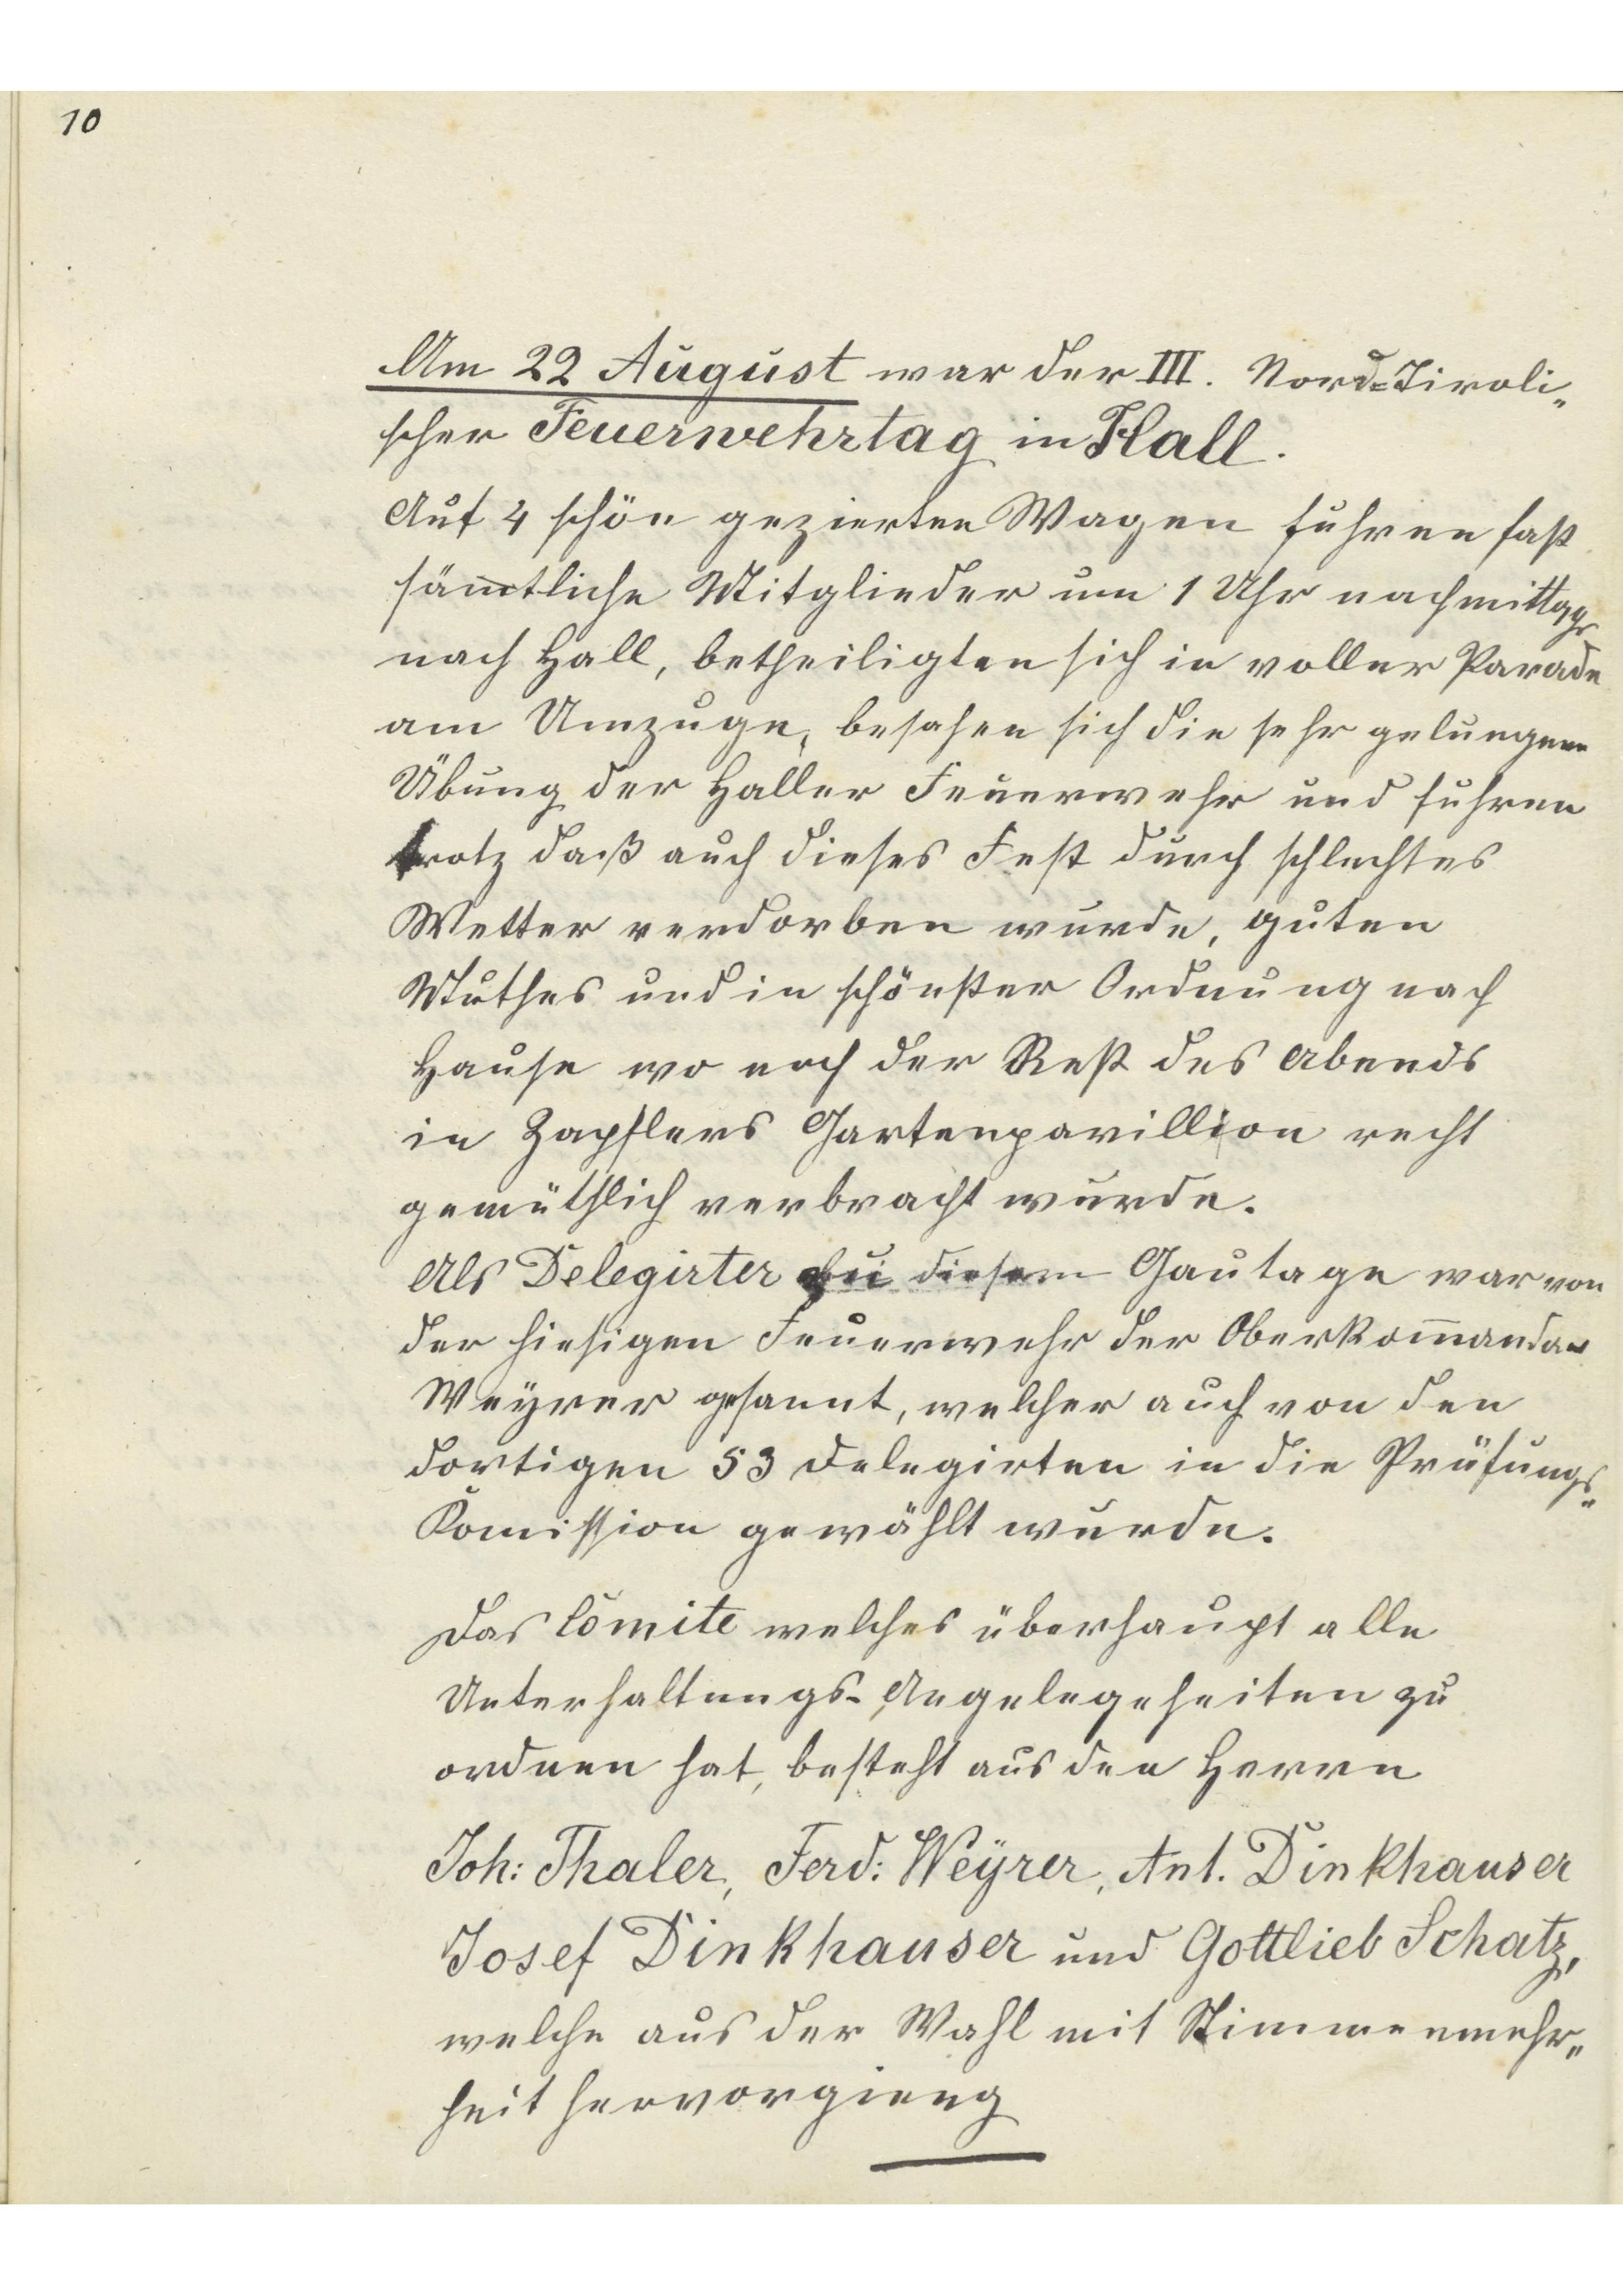 10
Am 22 August war der III. Nord=Tiroli„
scher Feuerwehrtag in Hall.
Auf 4 schön gezierten Wagen fuhren fast
sämtliche Mitglieder um 1 Uhr nachmittags
nach Hall, betheiligten sich in voller Parade
am Umzuge, besahen sich die sehr gelungene
Übung der Haller Feuerwehr und fuhren
trotz daß auch dieses Fest durch schlechtes
Wetter verdorben wurde, guten
Muthes und in schönster Ordnung nach
Hause wo noch der Rest des Abends
in Zapflers Gartenpavillion recht
gemüthlich verbracht wurde.
Als Delegirter bei diesem Gautage war von
der hiesigen Feuerwehr der Oberkom̅andan
Weÿrer gesannt, welcher auch von den
dortigen 53 Delegirten in die Prüfungs„
Kom̅ission gewählt wurde.
Das Com̅ite welches überhaupt alle
Unterhaltungs-Angelegeheiten zu
ordnen hat, besteht aus den Herrn
Joh: Thaler, Ferd: Weÿrer, Ant. Dinkhauser
Josef Dinkhauser und Gottlieb Schatz,
welche aus der Wahl mit Stimmenmehr„
heit hervorgieng